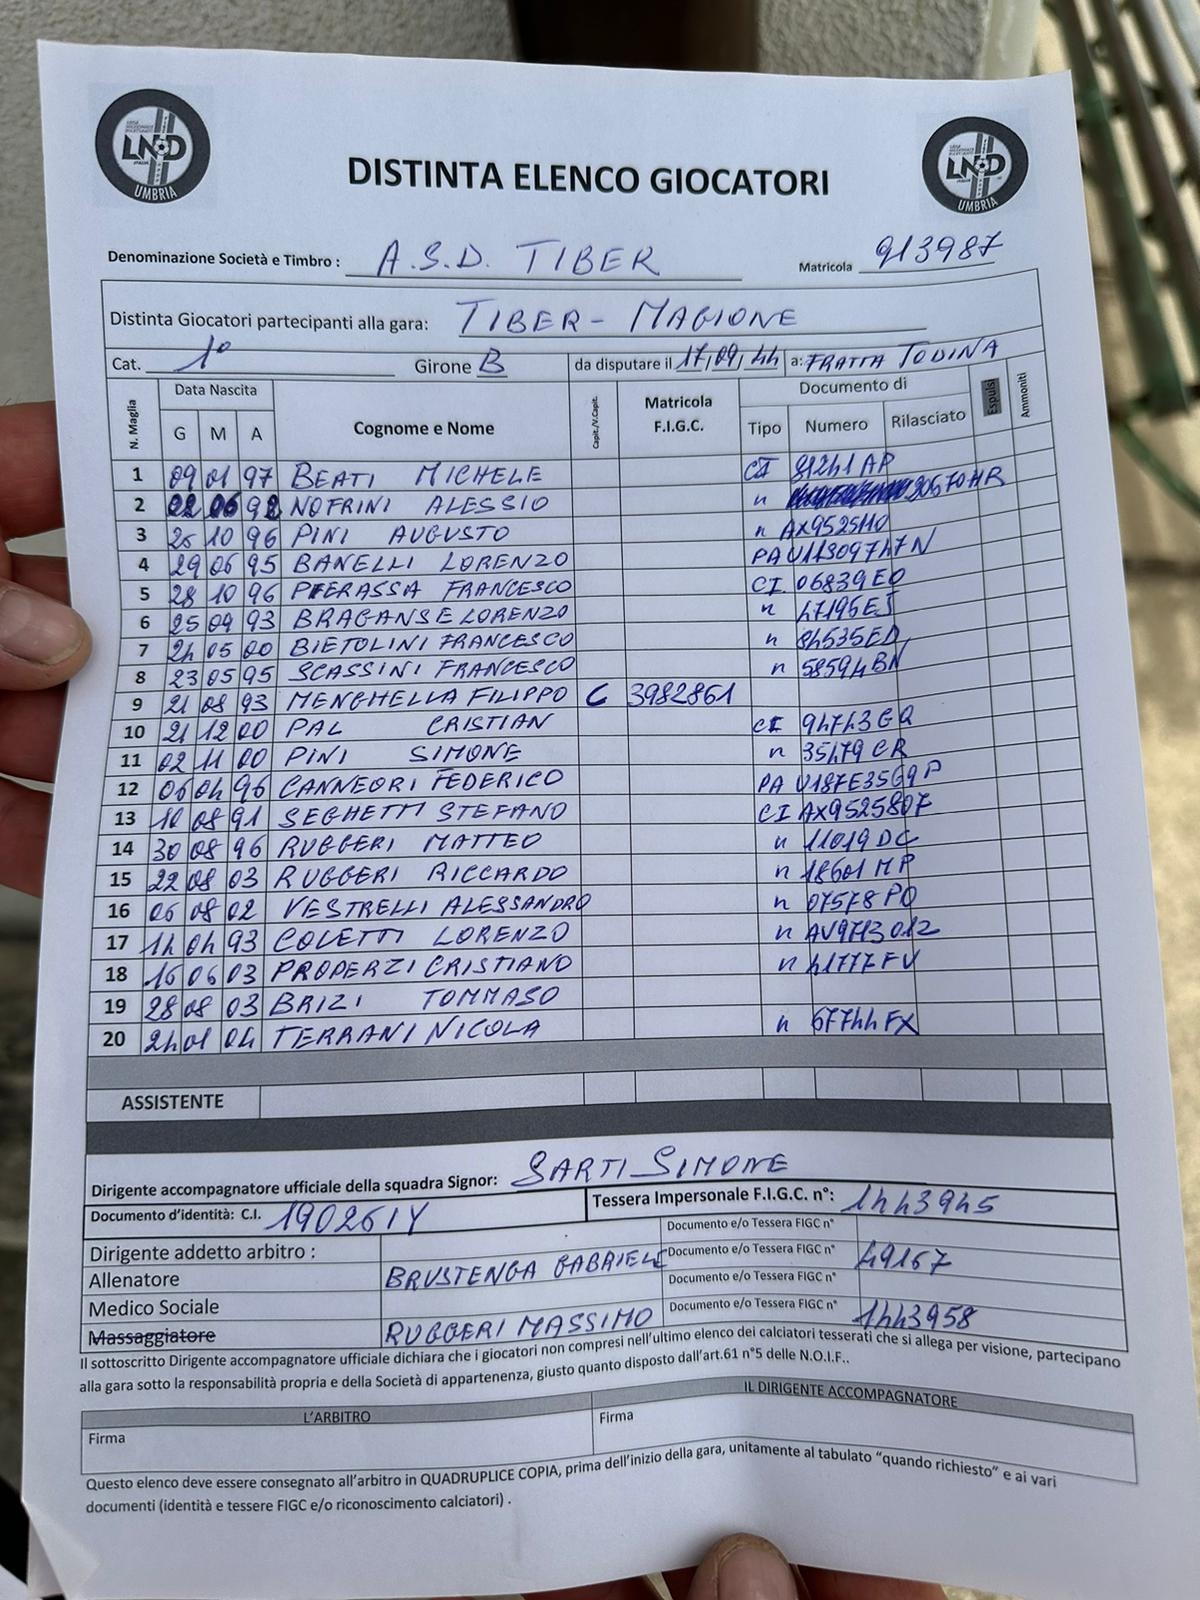 LND
UMBRIA
DISTINTA ELENCO GIOCATORI
LND
UMBRIA
Denominazione Società e Timbro : A.S.D. TIBER Matricola 913987
Distinta Giocatori partecipanti alla gara: TIBER - MAGIONE
Cat. 1° Girone B da disputare il 17/09/ a: FRATTA TODINA
N. Maglia Data Nascita Cognome e Nome Capit./V.Capit. Matricola F.I.G.C. Documento di Espulsi Ammoniti
G M A Tipo Numero Rilasciato
1 09 01 97 BEATI MICHELE CI 81241AP
2 02 06 92 NOFRINI ALESSIO " 30670HR
3 25 10 96 PINI AUGUSTO " AX9525110
4 29 06 95 BANELLI LORENZO PA
5 28 10 96 PIERASSA FRANCESCO CI 06839EO
6 25 09 93 BRAGANSE LORENZO " 47196EJ
7 24 05 00 BIETOLINI FRANCESCO " 84535ED
8 23 05 95 SCASSINI FRANCESCO " 58594BN
9 21 08 93 MENGHELLA FILIPPO C 3982861
10 21 12 00 PAL CRISTIAN CI 94743GQ
11 02 11 00 PINI SIMONE " 35479CR
12 06 04 96 CANNEORI FEDERICO PA
13 10 08 91 SEGHETTI STEFANO CI AX9525807
14 30 08 96 RUGGERI MATTEO " 11019DC
15 22 08 03 RUGGERI RICCARDO " 18601MP
16 06 08 02 VESTRELLI ALESSANDRO " 07578PQ
17 14 04 93 COLETTI LORENZO " AV9713012
18 16 06 03 PROPERZI CRISTIANO " 41777FV
19 28 08 03 BRIZI TOMMASO
20 24 01 04 TERRANI NICOLA " 67744FX
ASSISTENTE
Dirigente accompagnatore ufficiale della squadra Signor: SARTI SIMONE
Documento d'identità: C.I. 190261Y Tessera Impersonale F.I.G.C. n°: 1443945
Dirigente addetto arbitro : Documento e/o Tessera FIGC n°
Allenatore BRUSTENGA GABRIELE Documento e/o Tessera FIGC n° 49167
Medico Sociale Documento e/o Tessera FIGC n°
Massaggiatore RUGGERI MASSIMO Documento e/o Tessera FIGC n° 1443958
Il sottoscritto Dirigente accompagnatore ufficiale dichiara che i giocatori non compresi nell'ultimo elenco dei calciatori tesserati che si allega per visione, partecipano
alla gara sotto la responsabilità propria e della Società di appartenenza, giusto quanto disposto dall'art.61 n°5 delle N.O.I.F..
L'ARBITRO IL DIRIGENTE ACCOMPAGNATORE
Firma Firma
Questo elenco deve essere consegnato all'arbitro in QUADRUPLICE COPIA, prima dell'inizio della gara, unitamente al tabulato "quando richiesto" e ai vari
documenti (identità e tessere FIGC e/o riconoscimento calciatori) .